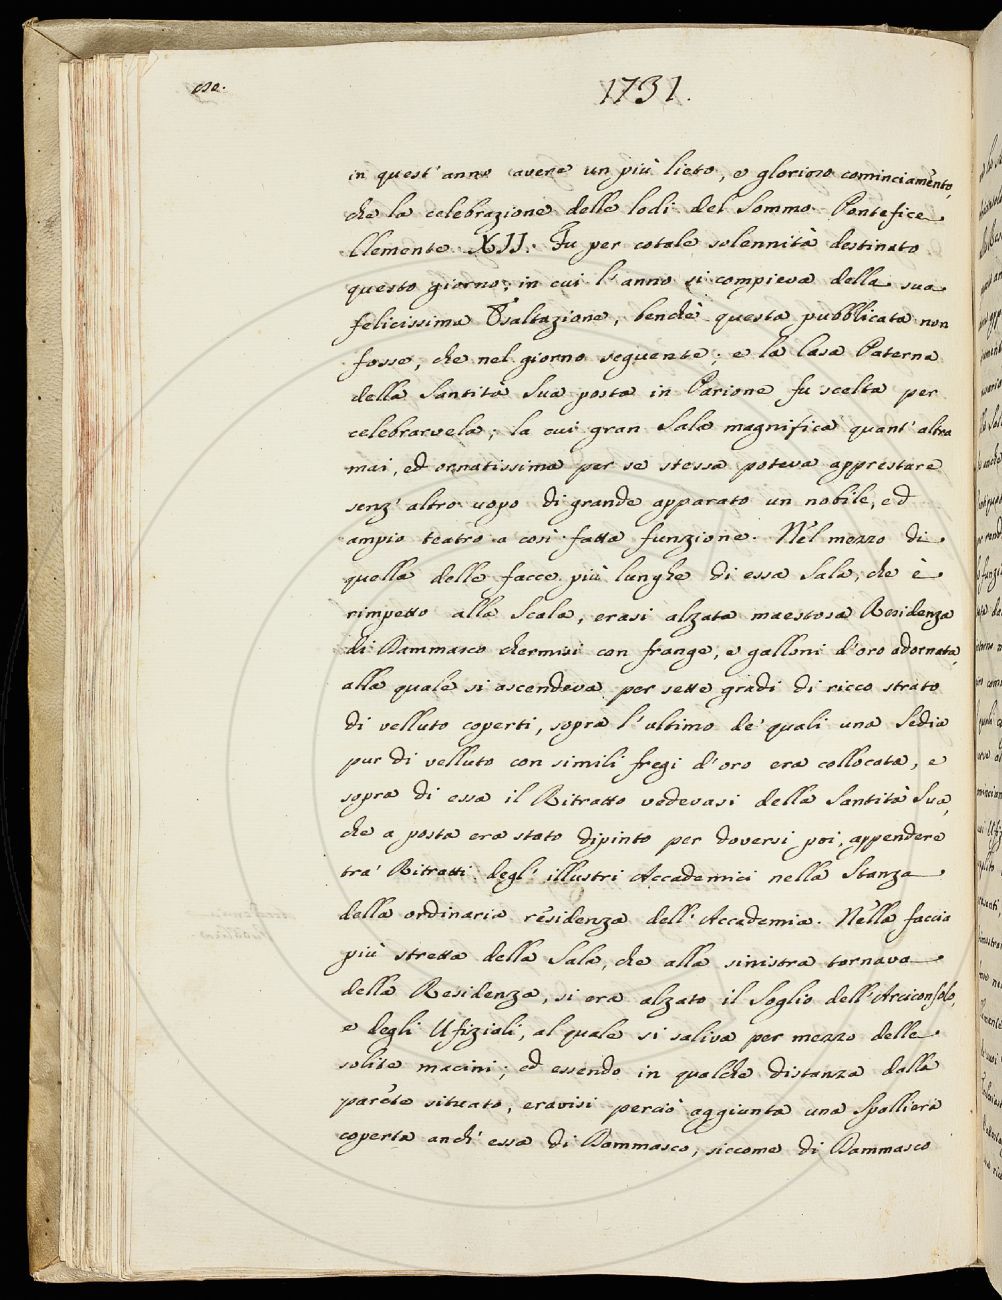 1731.
in quest' anno avere un più lieto, e glorioso cominciamento,
che la celebrazione delle lodi del Sommo Pontefice
Clemente XII. Fu per cotale solennità destinato
questo giorno, in cui l'anno si compieva della sua
felicissima Esaltazione, benchè questa pubblicata non
fosse, che nel giorno seguente; e la Casa Paterna
della Santità Sua posta in Parione fu scelta per
celebrarvela; la cui gran Sala magnifica quant' altra
mai, ed ornatissima per se stessa poteva apprestare
senz' altro uopo di grande apparato un nobile, ed
ampio teatro a così fatta funzione. Nel mezzo di
quella delle facce più lunghe di essa Sala, che è
rimpetto alla Scala, erasi alzata maestosa Residenza
di Dammasco chermisi con frange, e galloni d'oro adornata,
alla quale si ascendeva per sette gradi di ricco strato
di velluto coperti, sopra l'ultimo de' quali una Sedia
pur di velluto con simili fregi d'oro era collocata, e
sopra di essa il Ritratto vedevasi della Santità Sua,
che a posta era stato dipinto per doversi poi appendere
tra' Ritratti degl' illustri Accademici nella Stanza
della ordinaria residenza dell' Accademia. Nella faccia
più stretta della Sala, che alla sinistra tornava
della Residenza, si era alzato il Soglio dell' Arciconsolo,
e degli Ufiziali, al quale si saliva per mezzo delle
solite macini; ed essendo in qualche distanza dalla
parete situato, eravisi perciò aggiunta una Spalliera
coperta anch' essa di Dammasco, siccome di Dammasco